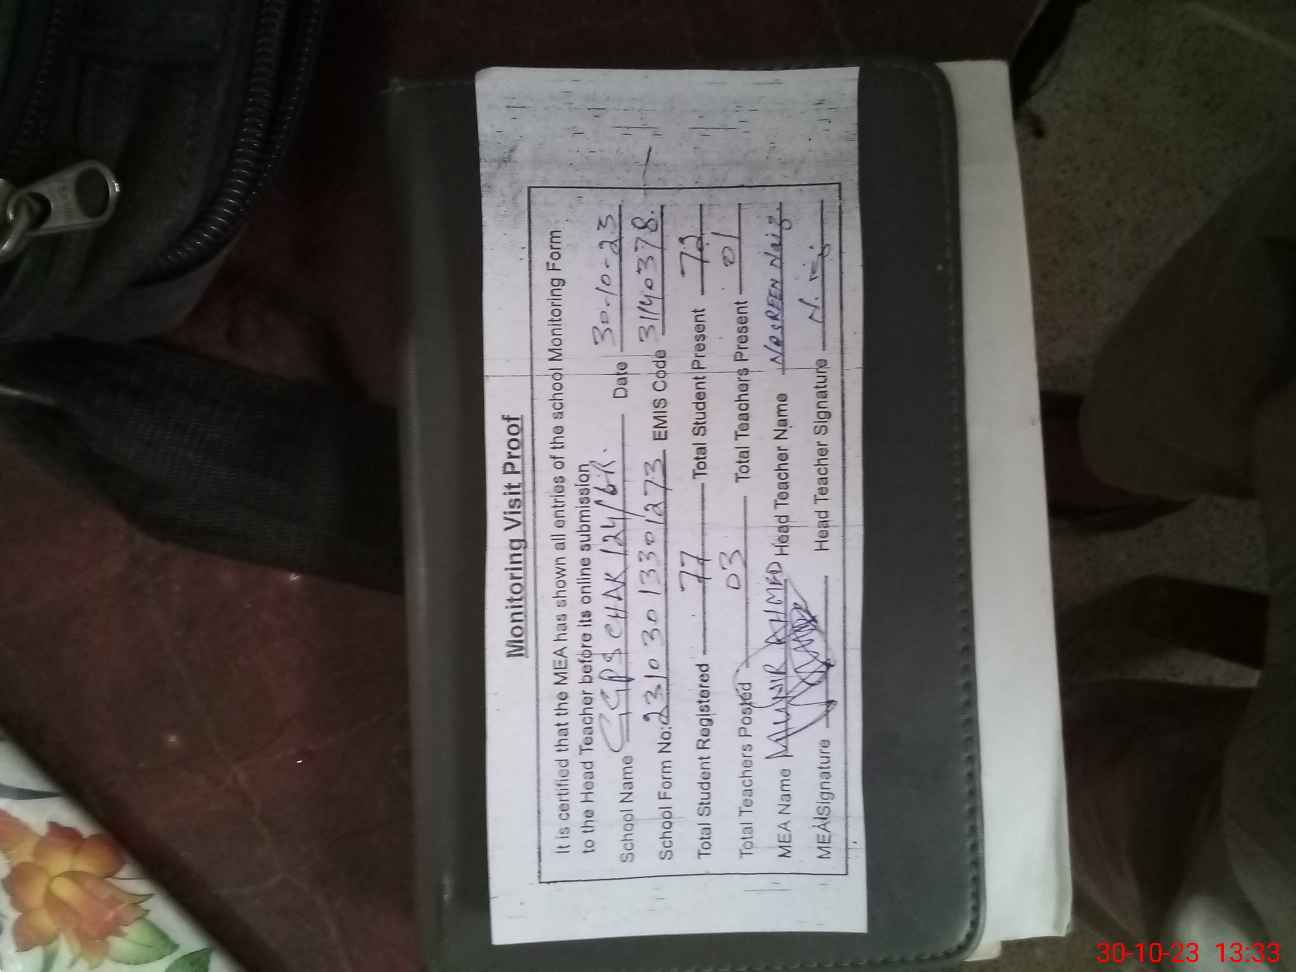 Monitoring Visit Proof
It is certified that the MEA has shown all entries of the school Monitoring Form
to the Head Teacher before its online submission
School Name GGPS CHAK 124/6R. Date 30-10-23
School Form No: 23103013301273 EMIS Code 31140378.
Total Student Registered 77 Total Student Present 72
Total Teachers Posted 03 Total Teachers Present 01
MEA Name MUNIR AHMED Head Teacher Name NasREEN Naiz
MEA Signature Head Teacher Signature
30-10-23 13:33